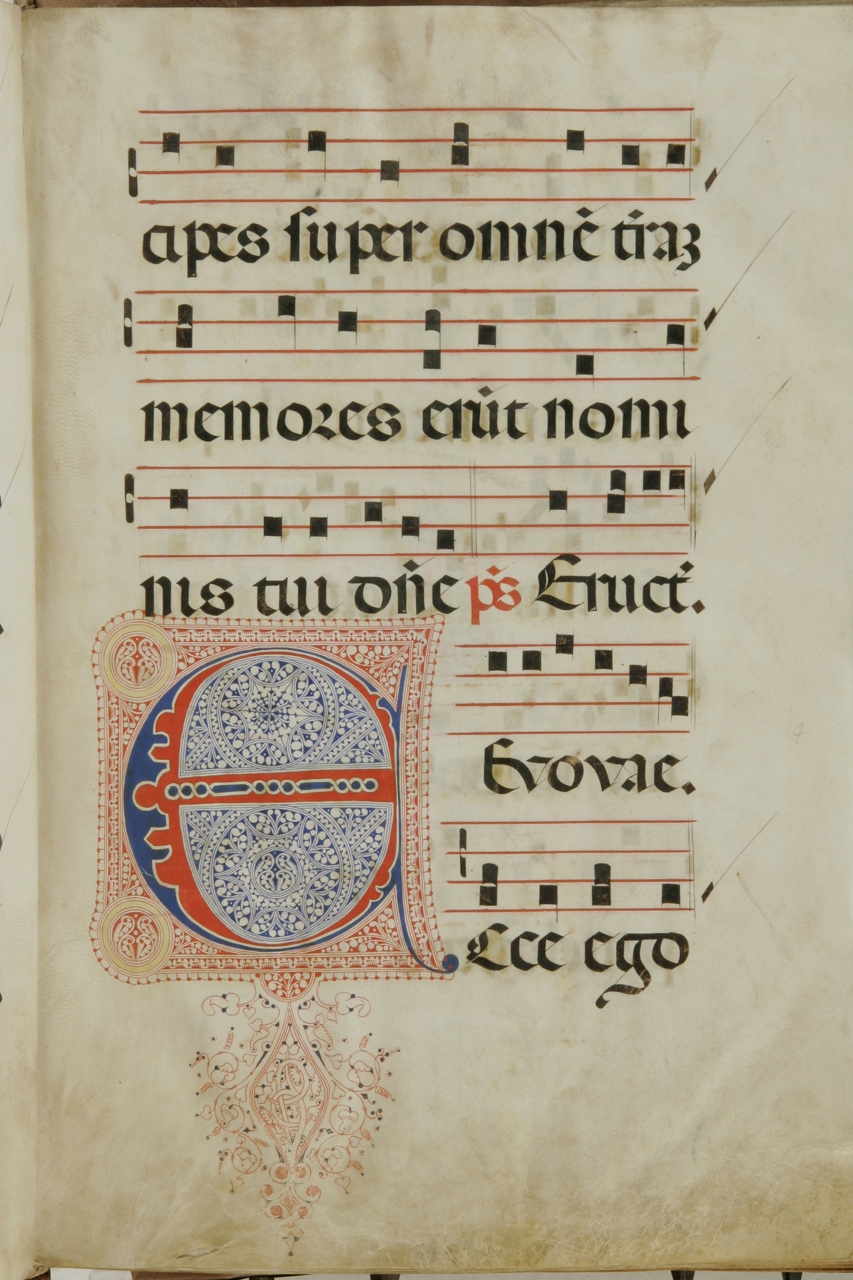 cipes super omnē t̄raꝫ
memores erūt nomi
nis tui dn̄e ps̄ Eruct̄.
Evovae.
E Cce ego